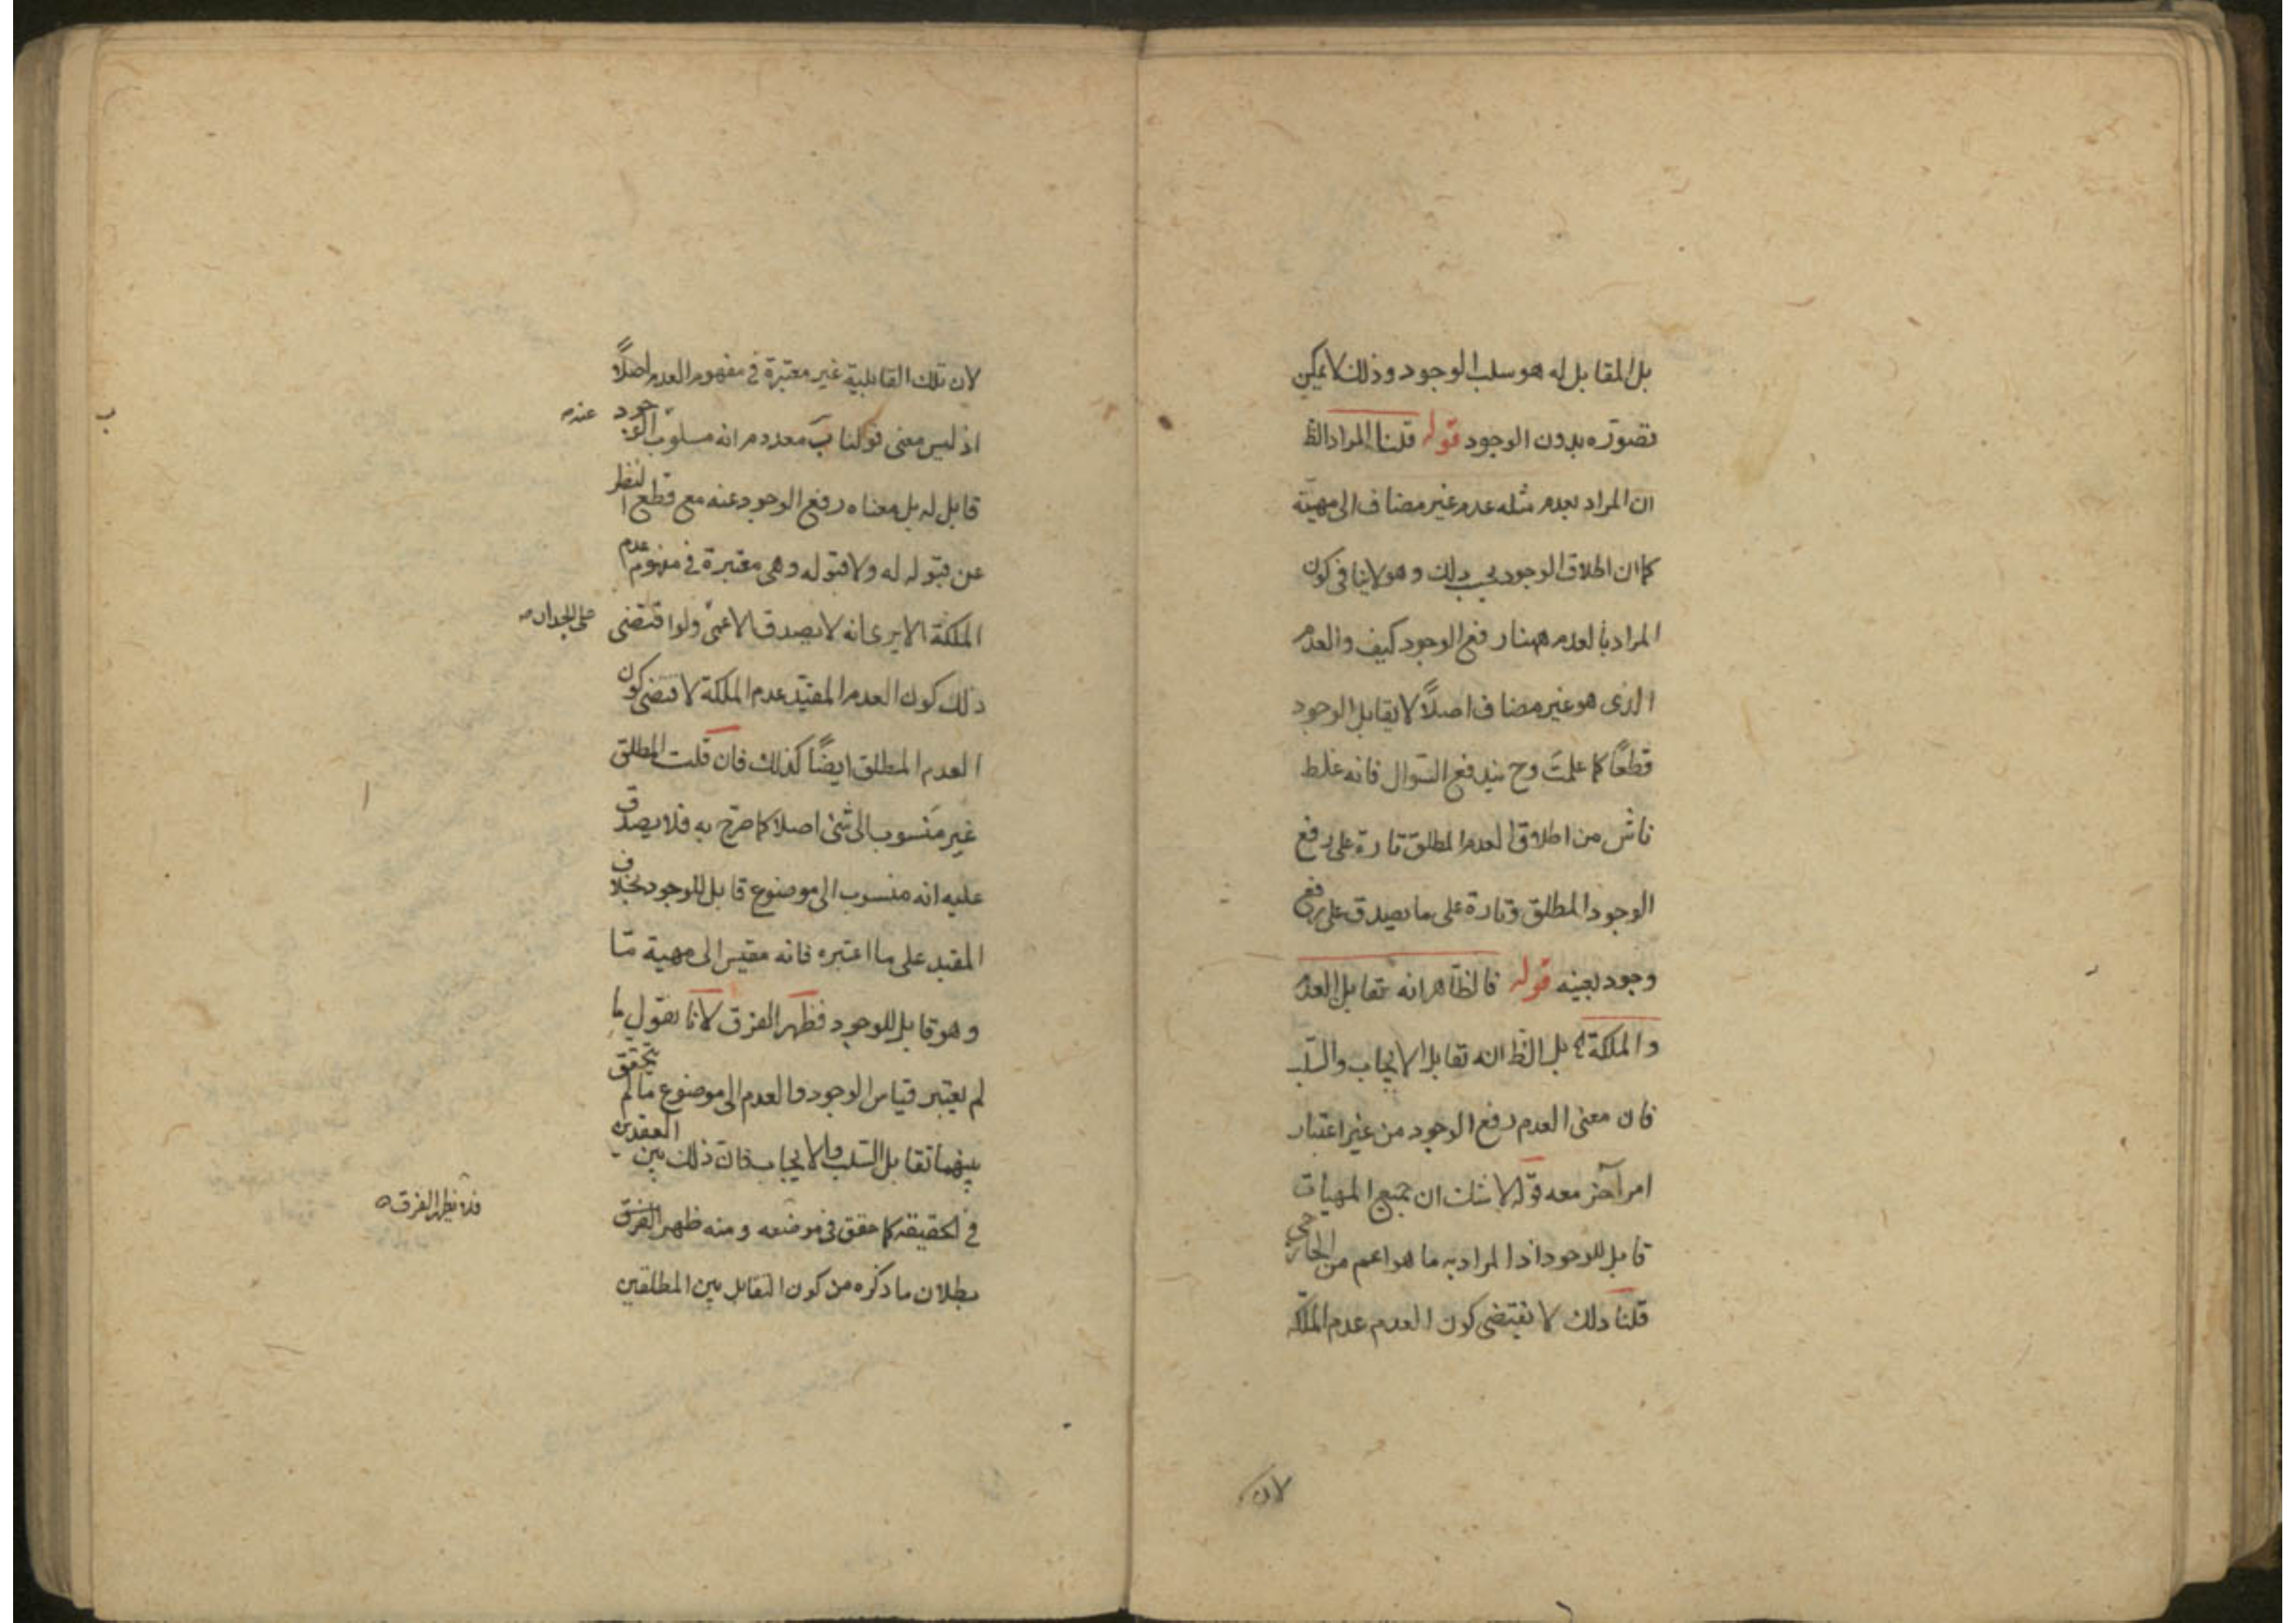 بل المقابل له هو سلب الوجود وذلك لا يمكن
تصوّره بدون الوجود قوله قلنا المراد الظ
ان المراد بعدم مثله عدم غير مضاف الى مهيّة
كما ان اطلاق الوجود بحسب ذلك وهو لا ينافى كون
المراد بالعدم ههنا رفع الوجود كيف والعدم
الذى هو غير مضاف اصلاً لا يقابل الوجود
قطعًا كما علمتَ وح يندفع السّوال فانه غلط
ناش من اطلاق العدم المطلق تارة على رفع
الوجود المطلق وتارة على ما يصدق على رفع
وجود بعينه قوله فالظاهر انه تقابل العدم
والملكة بل الظ انه تقابل الايجاب والسّلب
فان معنى العدم رفع الوجود من غير اعتبار
امر آخر معه قوله لا شك ان جميع المهيات
قابل للوجود اذ المراد به ما هو اعم من الخارجى
قلنا ذلك لا يقتضى كون العدم عدم الملكة
لان
لان تلك القابلية غير معتبرة فى مفهوم العدم اصلاً
اذ ليس معنى قولنا بَ معدوم انه مسلوب الوجود عنه
قابل له بل معناه رفع الوجود عنه مع قطع النظر
عن قبوله له ولا قبوله وهى معتبرة فى مفهوم عدم
الملكة الا يرى انه لا يصدق الاعمى ولو اقتضى
على الجدار
ذلك كون العدم المقيّد عدم الملكة لاقتضى كون
العدم المطلق ايضًا كذلك فان قلت المطلق
غير منسوب الى شئ اصلا كما صرّح به فلا يصدق
عليه انه منسوب الى موضوع قابل للوجود بخلاف
المقيد على ما اعتبره فانه مقيس الى مهية مّا
وهو قابل للوجود فظهر الفرق لانا نقول ما
لم يعتبر قياس الوجود والعدم الى موضوع ما لم يتحقق
بينهما تقابل السّلب والايجاب فان ذلك بين العقدين
فى الحقيقة كما حقق فى موضعه ومنه ظهر
فلا يظهر الفرق
بطلان ما ذكره من كون التقابل بين المطلقين